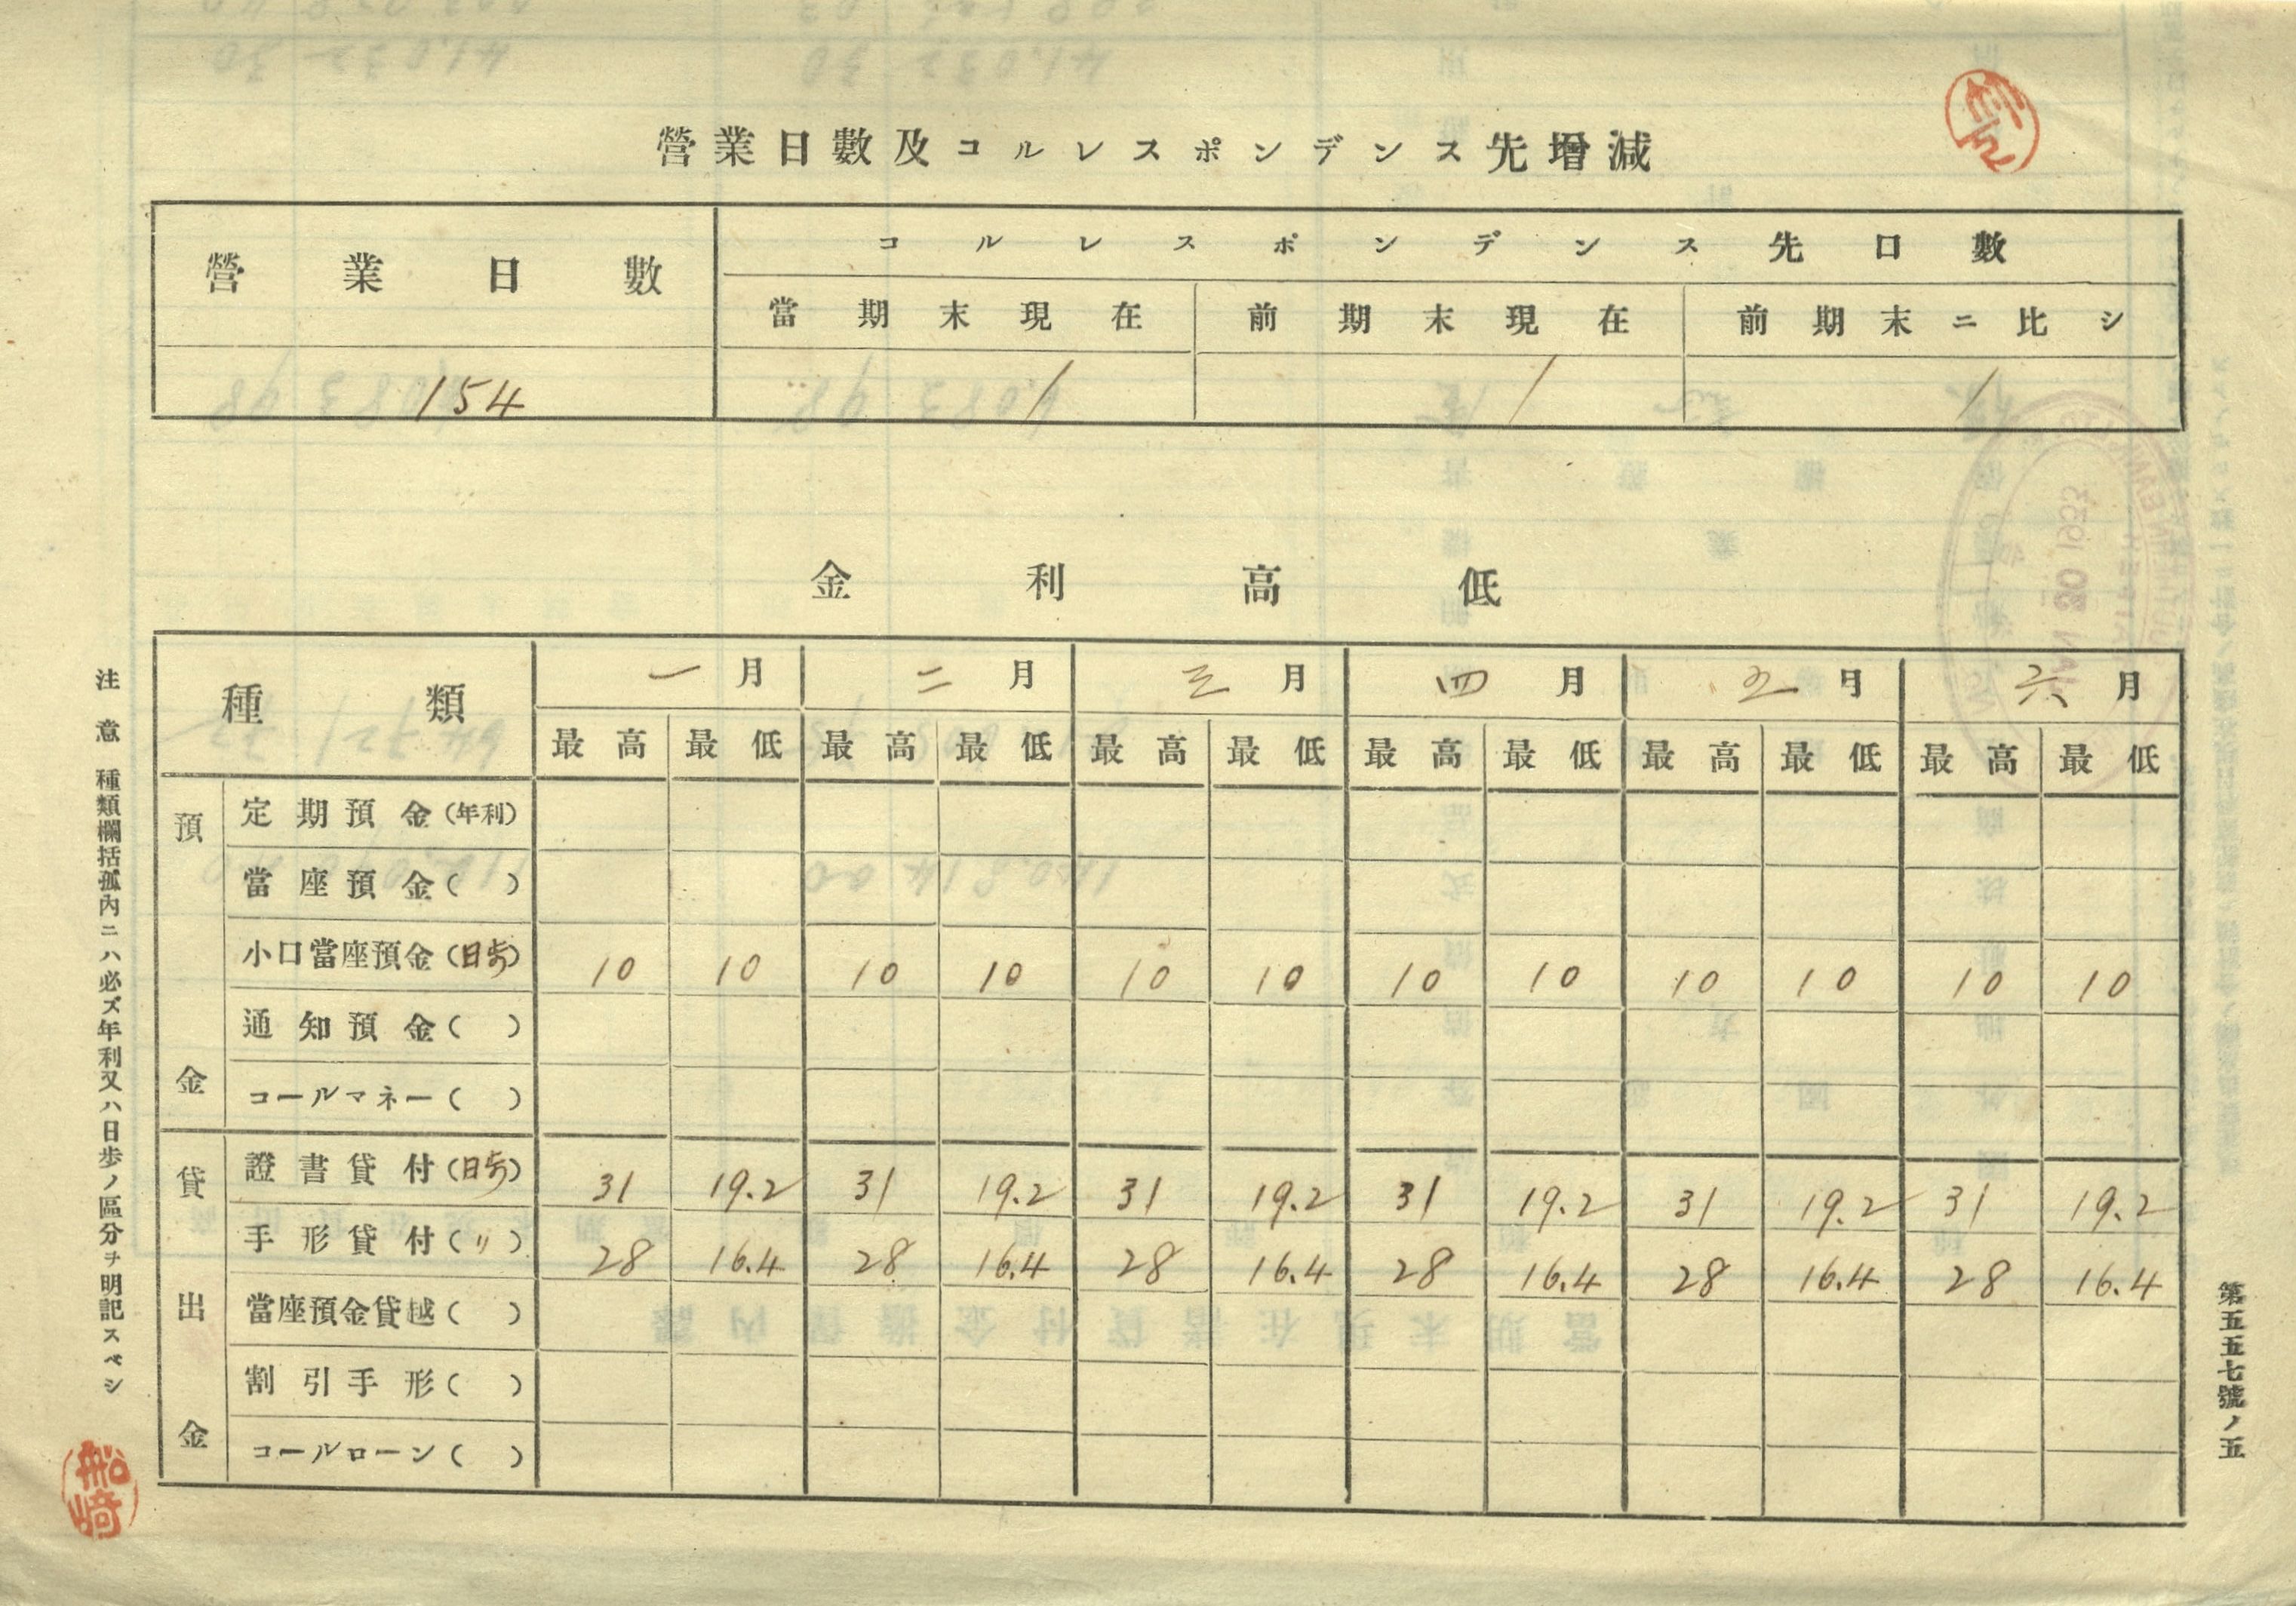 營業日數及コルレスポンデンス先增減
營業日數 コルレスポンデンス先口數
當期末現在 前期末現在 前期末ニ比シ
154 / / /
金利高低
種類 一月 二月 三月 四月 五月 六月
最高 最低 最高 最低 最高 最低 最高 最低 最高 最低 最高 最低
預金
定期預金(年利)
當座預金( )
小口當座預金(日歩) 10 10 10 10 10 10 10 10 10 10 10 10
通知預金( )
コールマネー( )
貸出金
證書貸付(日歩) 31 19.2 31 19.2 31 19.2 31 19.2 31 19.2 31 19.2
手形貸付(〃) 28 16.4 28 16.4 28 16.4 28 16.4 28 16.4 28 16.4
當座預金貸越( )
割引手形( )
コールローン( )
注意 種類欄括孤內ニハ必ズ年利又ハ日歩ノ區分ヲ明記スベシ
第五五七號ノ五
船崎